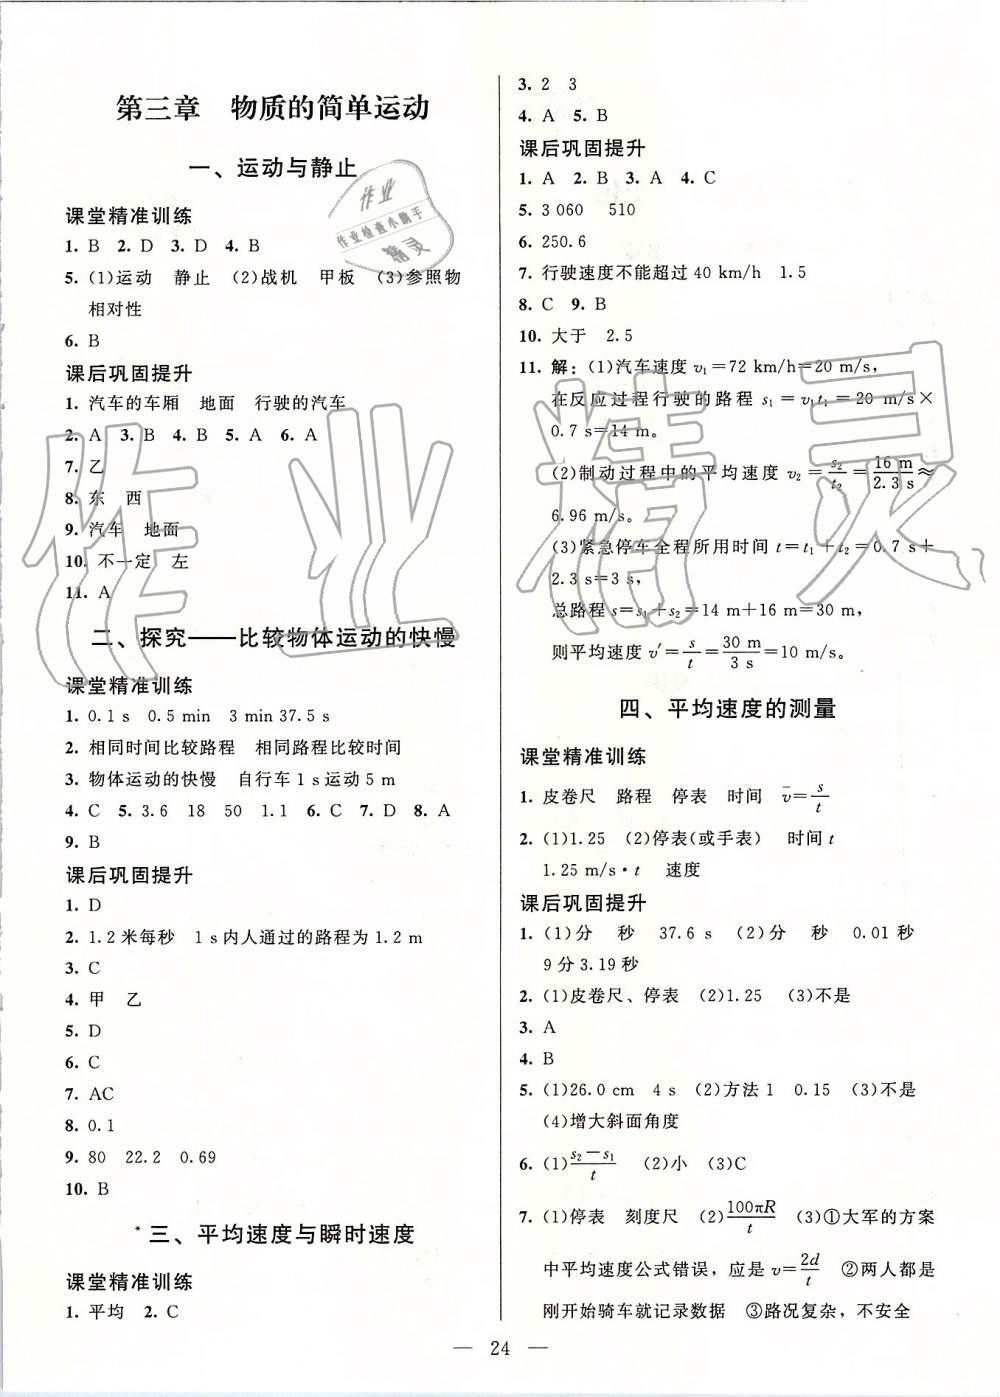 第三章 物质的简单运动
一、运动与静止
课堂精准训练
1. B 2. D 3. D 4. B
5. (1)运动 静止 (2)战机 甲板 (3)参照物
相对性
6. B
课后巩固提升
1. 汽车的车厢 地面 行驶的汽车
2. A 3. B 4. B 5. A 6. A
7. 乙
8. 东 西
9. 汽车 地面
10. 不一定 左
11. A
二、探究——比较物体运动的快慢
课堂精准训练
1. 0.1 s 0.5 min 3 min 37.5 s
2. 相同时间比较路程 相同路程比较时间
3. 物体运动的快慢 自行车1 s运动5 m
4. C 5. 3.6 18 50 1.1 6. C 7. D 8. A
9. B
课后巩固提升
1. D
2. 1.2米每秒 1 s内人通过的路程为1.2 m
3. C
4. 甲 乙
5. D
6. C
7. AC
8. 0.1
9. 80 22.2 0.69
10. B
*三、平均速度与瞬时速度
课堂精准训练
1. 平均 2. C
3. 2 3
4. A 5. B
课后巩固提升
1. A 2. B 3. A 4. C
5. 3 060 510
6. 250.6
7. 行驶速度不能超过40 km/h 1.5
8. C 9. B
10. 大于 2.5
11. 解:(1)汽车速度v₁=72 km/h=20 m/s,
在反应过程行驶的路程s₁=v₁t₁=20 m/s×
0.7 s=14 m。
(2)制动过程中的平均速度v₂=s₂/t₂=16 m/2.3 s≈
6.96 m/s。
(3)紧急停车全程所用时间t=t₁+t₂=0.7 s+
2.3 s=3 s,
总路程s=s₁+s₂=14 m+16 m=30 m,
则平均速度v′=s/t=30 m/3 s=10 m/s。
四、平均速度的测量
课堂精准训练
1. 皮卷尺 路程 停表 时间 v̄=s/t
2. (1)1.25 (2)停表(或手表) 时间t
1.25 m/s·t 速度
课后巩固提升
1. (1)分 秒 37.6 s (2)分 秒 0.01秒
9分3.19秒
2. (1)皮卷尺、停表 (2)1.25 (3)不是
3. A
4. B
5. (1)26.0 cm 4 s (2)方法1 0.15 (3)不是
(4)增大斜面角度
6. (1)s₂−s₁/t (2)小 (3)C
7. (1)停表 刻度尺 (2)100πR/t (3)①大军的方案
中平均速度公式错误,应是v=2d/t ②两人都是
刚开始骑车就记录数据 ③路况复杂,不安全
— 24 —
作业
作业检查小助手
精灵
作业精灵